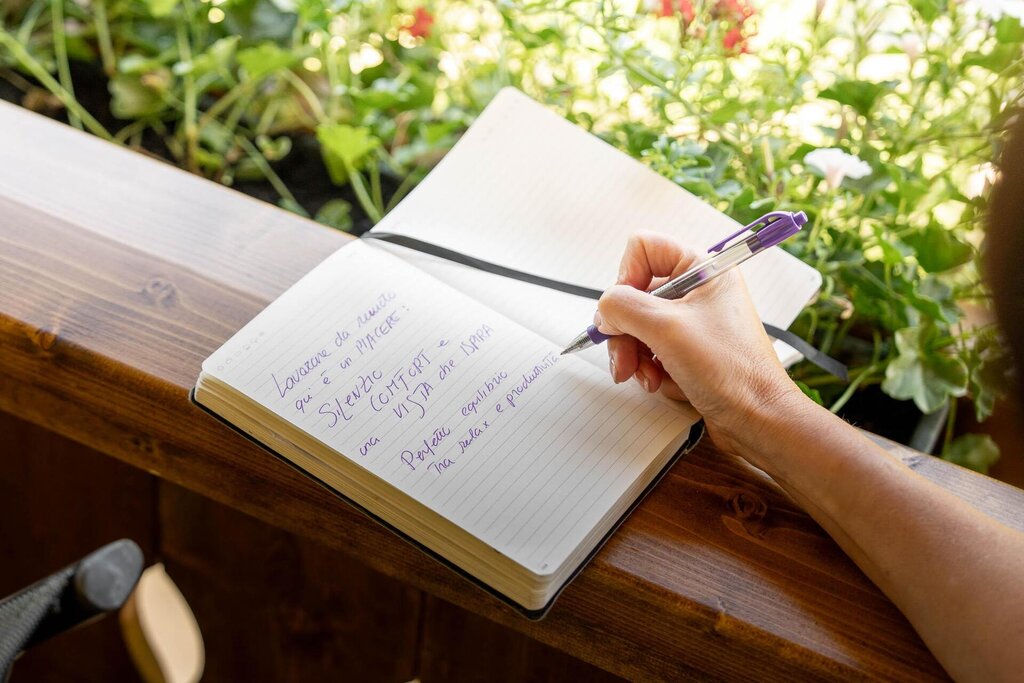 Lavorare da remoto
qui è un PIACERE:
SILENZIO
COMFORT e
una VISTA che ISPIRA
Perfetto equilibrio
tra relax e produttività